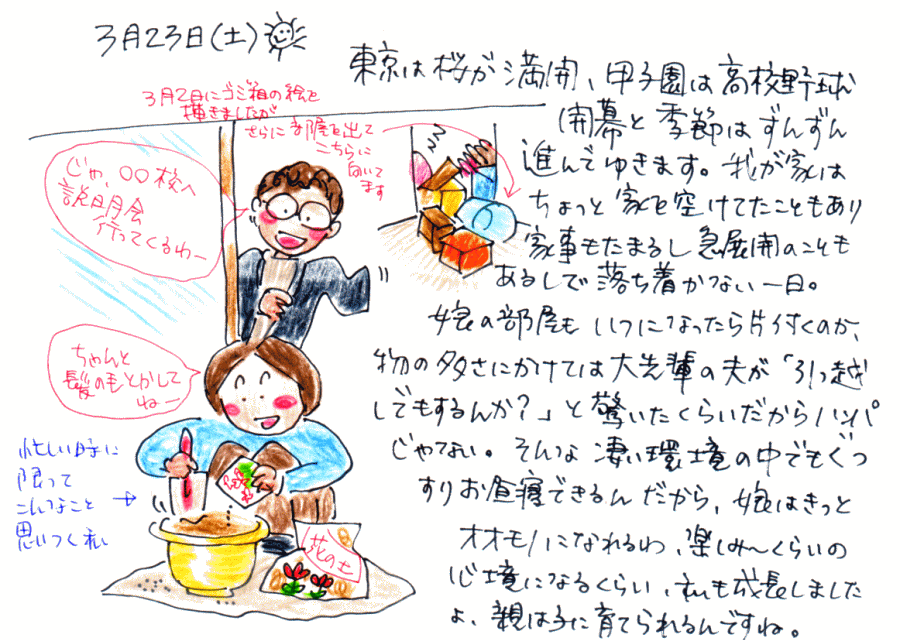 3月23日(土)
東京は桜が満開、甲子園は高校野球
開幕と季節はずんずん
進んでゆきます。我が家は
ちょっと家を空けてたこともあり
家事もたまるし急展開のことも
あるしで落ち着かない一日。
娘の部屋もいつになったら片付くのか、
物の多さにかけては大先輩の夫が「引っ越
しでもするんか?」と驚いたくらいだからハンパ
じゃてない。そんな凄い環境の中でもぐっ
すりお昼寝できるんだから、娘はきっと
オオモノになれるわ、楽しみ〜くらいの
心境になるくらい、私も成長しました
よ、親は子に育てられるんですね。
3月2日にゴミ箱の絵を
描きましたが
さらに部屋を出て
こちらに
向いて
ます
じゃ、○○校へ
説明会
行ってくるわー
ちゃんと
髪の毛とかして
ねー
忙しい時に
限って
こんなこと
思いつく私
花の土